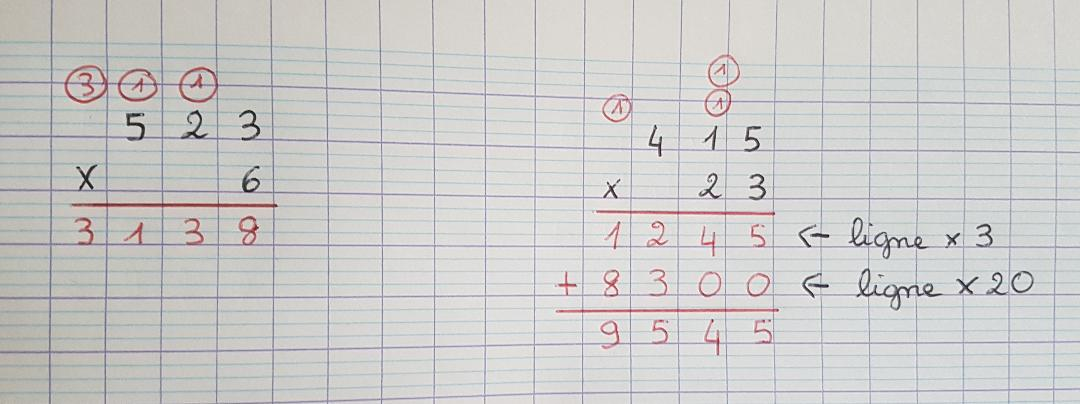 3 1 1
5 2 3
x 6
3 1 3 8
1
1 1
4 1 5
x 2 3
1 2 4 5 ← ligne x 3
+ 8 3 0 0 ← ligne x 20
9 5 4 5